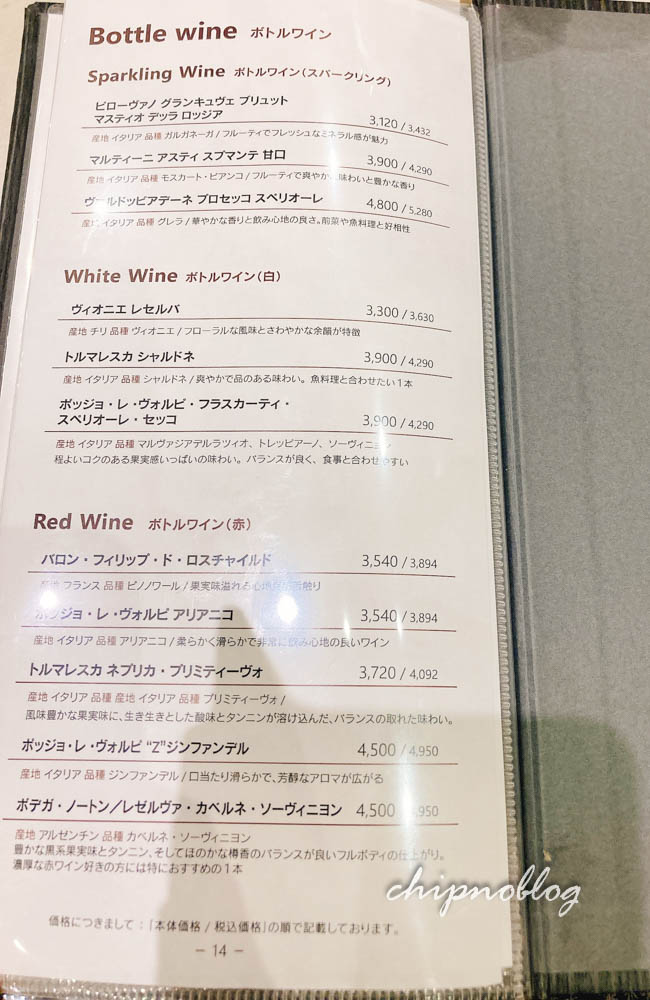 Bottle wine ボトルワイン
Sparkling Wine ボトルワイン(スパークリング)
ピローヴァノ グランキュヴェ ブリュット
マスティオ デッラ ロッジア 3,120 / 3,432
産地 イタリア 品種 ガルガネーガ / フルーティでフレッシュなミネラル感が魅力
マルティーニ アスティ スプマンテ 甘口 3,900 / 4,290
産地 イタリア 品種 モスカート・ビアンコ / フルーティで爽やかな味わいと豊かな香り
ヴァルドッビアデーネ プロセッコ スペリオーレ 4,800 / 5,280
産地 イタリア 品種 グレラ / 華やかな香りと飲み心地の良さ。前菜や魚料理と好相性
White Wine ボトルワイン(白)
ヴィオニエ レセルバ 3,300 / 3,630
産地 チリ 品種 ヴィオニエ / フローラルな風味とさわやかな余韻が特徴
トルマレスカ シャルドネ 3,900 / 4,290
産地 イタリア 品種 シャルドネ / 爽やかで品のある味わい。魚料理と合わせたい1本
ポッジョ・レ・ヴォルピ・フラスカーティ・
スペリオーレ・セッコ 3,900 / 4,290
産地 イタリア 品種 マルヴァジアデルラツィオ、トレッビアーノ、ソーヴィニヨン
程よいコクのある果実感いっぱいの味わい。バランスが良く、食事と合わせやすい
Red Wine ボトルワイン(赤)
バロン・フィリップ・ド・ロスチャイルド 3,540 / 3,894
産地 フランス 品種 ピノノワール / 果実味溢れる心地良い舌触り
ポッジョ・レ・ヴォルピ アリアニコ 3,540 / 3,894
産地 イタリア 品種 アリアニコ / 柔らかく滑らかで非常に飲み心地の良いワイン
トルマレスカ ネプリカ・プリミティーヴォ 3,720 / 4,092
産地 イタリア 品種 産地 イタリア 品種 プリミティーヴォ /
風味豊かな果実味に、生き生きとした酸味とタンニンが溶け込んだ、バランスの取れた味わい。
ポッジョ・レ・ヴォルピ "Z"ジンファンデル 4,500 / 4,950
産地 イタリア 品種 ジンファンデル / 口当たり滑らかで、芳醇なアロマが広がる
ボデガ・ノートン/レゼルヴァ・カベルネ・ソーヴィニヨン 4,500 / 4,950
産地 アルゼンチン 品種 カベルネ・ソーヴィニヨン
豊かな黒系果実味とタンニン、そしてほのかな樽香のバランスが良いフルボディの仕上がり。
濃厚な赤ワイン好きの方には特におすすめの1本
chipnoblog
価格につきまして:「本体価格 / 税込価格」の順で記載しております。
− 14 −